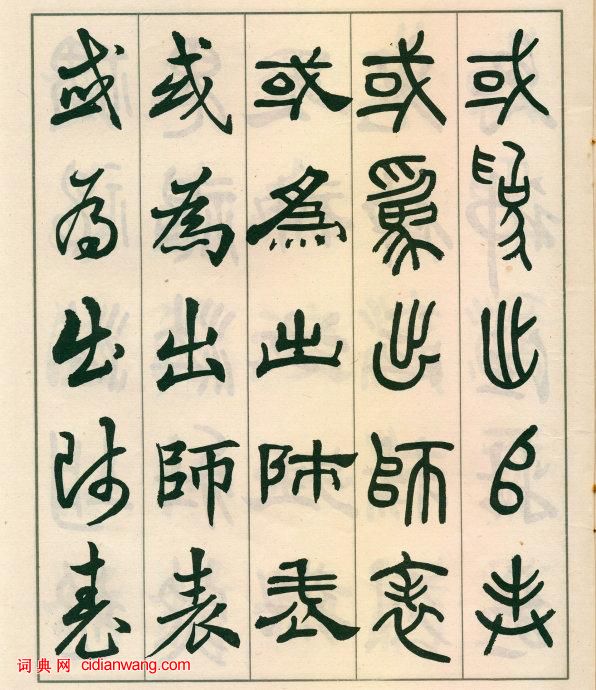 或為出師表
或爲出師表
或為出師表
或為出師表
或為出師表
词典网 cidianwang.com